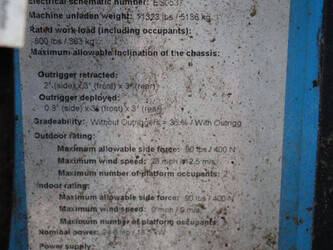 Electrical schematic number: ES0537
Machine unladen weight: 11323 lbs / 5136 kg
Rated work load (including occupants):
800 lbs / 363 kg
Maximum allowable inclination of the chassis:
Outrigger retracted:
2° (side) x 3° (front) x 3° (rear)
Outrigger deployed:
(side) x 3° (front) x 3° (rear)
Gradeability: Without Outriggers = 35% / With Outrigg
Outdoor rating:
Maximum allowable side force: 90 lbs / 400 N
Maximum wind speed: 28 mph / 12.5 m/s
Maximum number of platform occupants: 2
Indoor rating:
Maximum allowable side force: 90 lbs / 400 N
Maximum wind speed: 0 mph / 0 m/s
Maximum number of platform occupants:
Nominal power:
Power supply: